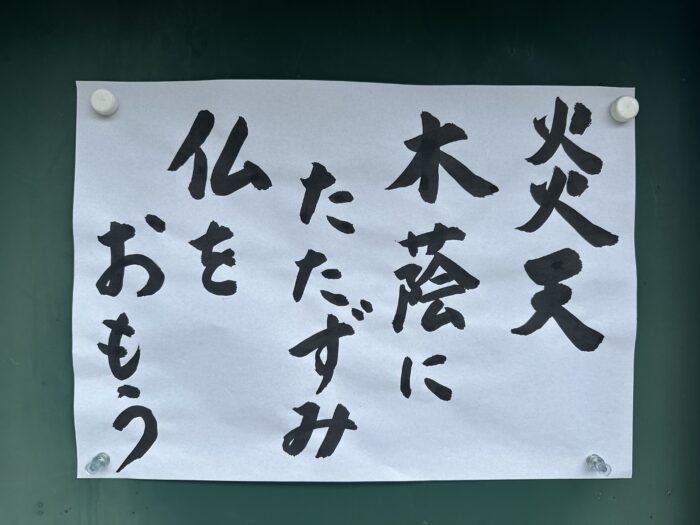 炎天
木蔭に
たたずみ
仏を
おもう